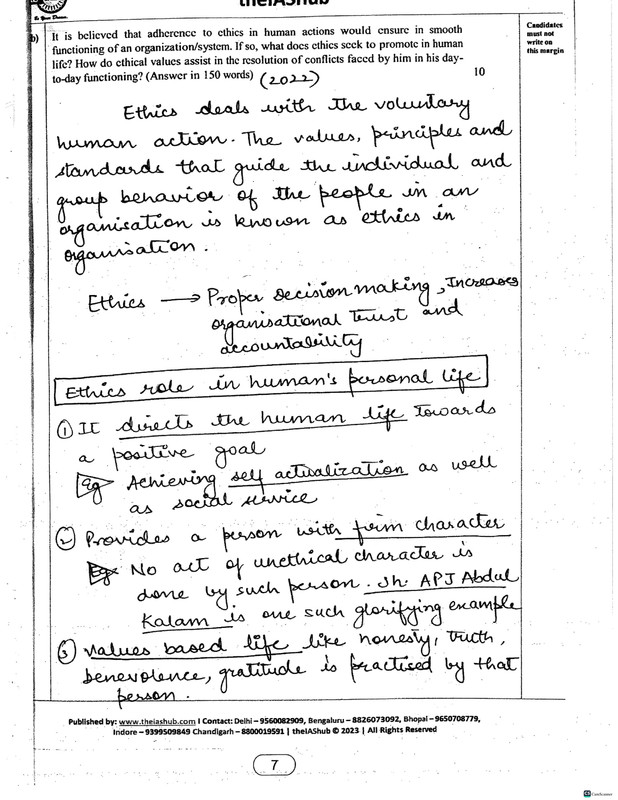 theIAShub
In Your Dream.
Candidates
must not
write on
this margin
b) It is believed that adherence to ethics in human actions would ensure in smooth
functioning of an organization/system. If so, what does ethics seek to promote in human
life? How do ethical values assist in the resolution of conflicts faced by him in his day-
to-day functioning? (Answer in 150 words) (2022) 10
Ethics deals with the voluntary
human action. The values, principles and
standards that guide the individual and
group behavior of the people in an
organisation is known as ethics in
organisation.
Ethics → Proper decision making, Increases
organisational trust and
accountability
Ethics role in human's personal life
① It directs the human life towards
a positive goal
Eg Achieving self actualization as well
as social service
② Provides a person with firm character
Eg No act of unethical character is
done by such person. Sh. APJ Abdul
Kalam is one such glorifying example
③ Values based life like honesty, truth,
benevolence, gratitude is practised by that
person.
Published by: www.theiashub.com I Contact: Delhi – 9560082909, Bengaluru – 8826073092, Bhopal – 9650708779,
Indore – 9399509849 Chandigarh – 8800019591 | theIAShub © 2023 | All Rights Reserved
7
CamScanner